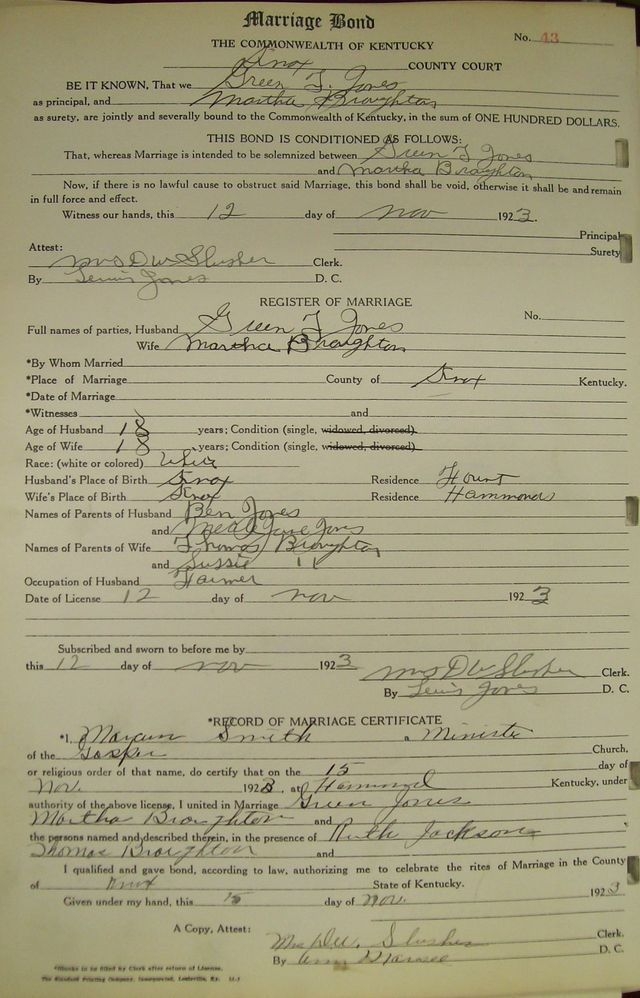 Marriage Bond
No. 43
THE COMMONWEALTH OF KENTUCKY
Knox COUNTY COURT
BE IT KNOWN, That we Green T. Jones
as principal, and Martha Broughton
as surety, are jointly and severally bound to the Commonwealth of Kentucky, in the sum of ONE HUNDRED DOLLARS.
THIS BOND IS CONDITIONED AS FOLLOWS:
That, whereas Marriage is intended to be solemnized between Green T Jones
and Martha Broughton
Now, if there is no lawful cause to obstruct said Marriage, this bond shall be void, otherwise it shall be and remain
in full force and effect.
Witness our hands, this 12 day of Nov 1923.
Principal
Surety
Attest:
Mrs D W Slusher Clerk.
By Lewis Jones D. C.
REGISTER OF MARRIAGE
No.
Full names of parties, Husband Green T Jones
Wife Martha Broughton
*By Whom Married
*Place of Marriage County of Knox Kentucky.
*Date of Marriage
*Witnesses and
Age of Husband 18 years; Condition (single, widowed, divorced)
Age of Wife 18 years; Condition (single, widowed, divorced)
Race: (white or colored) White
Husband's Place of Birth Knox Residence
Wife's Place of Birth Knox Residence Hammonds
Names of Parents of Husband Ben Jones
and Jane Jones
Names of Parents of Wife Thomas Broughton
and Sussie "
Occupation of Husband Farmer
Date of License 12 day of Nov 1923
Subscribed and sworn to before me by
this 12 day of Nov 1923 Mrs D W Slusher Clerk.
By Lewis Jones D. C.
*RECORD OF MARRIAGE CERTIFICATE
*I, Smith a Minister
of the Church,
or religious order of that name, do certify that on the 15 day of
Nov. 1923, at Hammond Kentucky, under
authority of the above license, I united in Marriage Green Jones
Martha Broughton and
the persons named and described therein, in the presence of Ruth Jackson
Thomas Broughton and
I qualified and gave bond, according to law, authorizing me to celebrate the rites of Marriage in the County
of Knox State of Kentucky.
Given under my hand, this 15 day of Nov. 1923
A Copy, Attest:
Mrs D.W. Slusher Clerk.
By D. C.
*Blanks to be filled by Clerk after return of License.
The Standard Printing Company, Incorporated, Louisville, Ky.